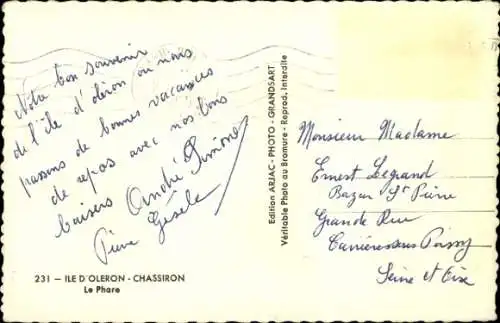 Notre bon souvenir
de l'île d'oléron ou nous
passons de bonnes vacances
de repos avec nos bons
baisers André Simone
Pierre Gisèle
231 — ILE D'OLERON - CHASSIRON
Le Phare
Edition ARJAC - PHOTO - GRANDSART
Véritable Photo au Bromure - Reprod. Interdite
Monsieur Madame
Ernest Legrand
Bazar St Pierre
Grande Rue
Carrières sous Poissy
Seine et Oise